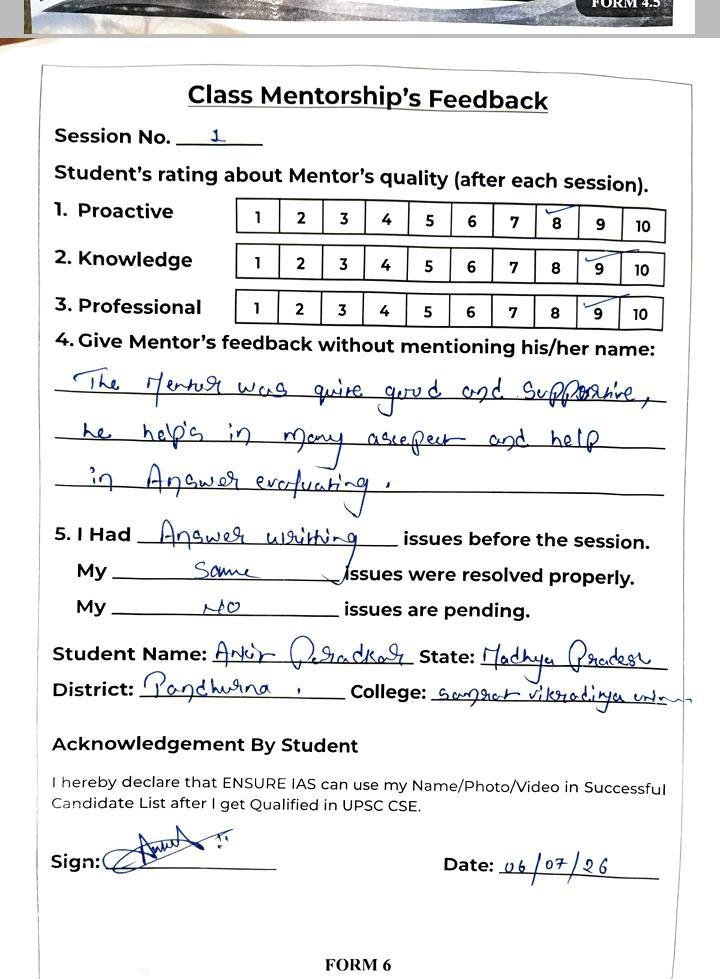 FORM 4.5
Class Mentorship's Feedback
Session No. 1
Student's rating about Mentor's quality (after each session).
1. Proactive 1 2 3 4 5 6 7 8 9 10
2. Knowledge 1 2 3 4 5 6 7 8 9 10
3. Professional 1 2 3 4 5 6 7 8 9 10
4. Give Mentor's feedback without mentioning his/her name:
The Mentor was quire good and supportive,
he help's in many and help
in Answer evaluating.
5. I Had Answer writting issues before the session.
My Same issues were resolved properly.
My NO issues are pending.
Student Name: State: Madhya Pradesh
District: Pandhurna. College:
Acknowledgement By Student
I hereby declare that ENSURE IAS can use my Name/Photo/Video in Successful
Candidate List after I get Qualified in UPSC CSE.
Sign:
Date: 06/07/26
FORM 6